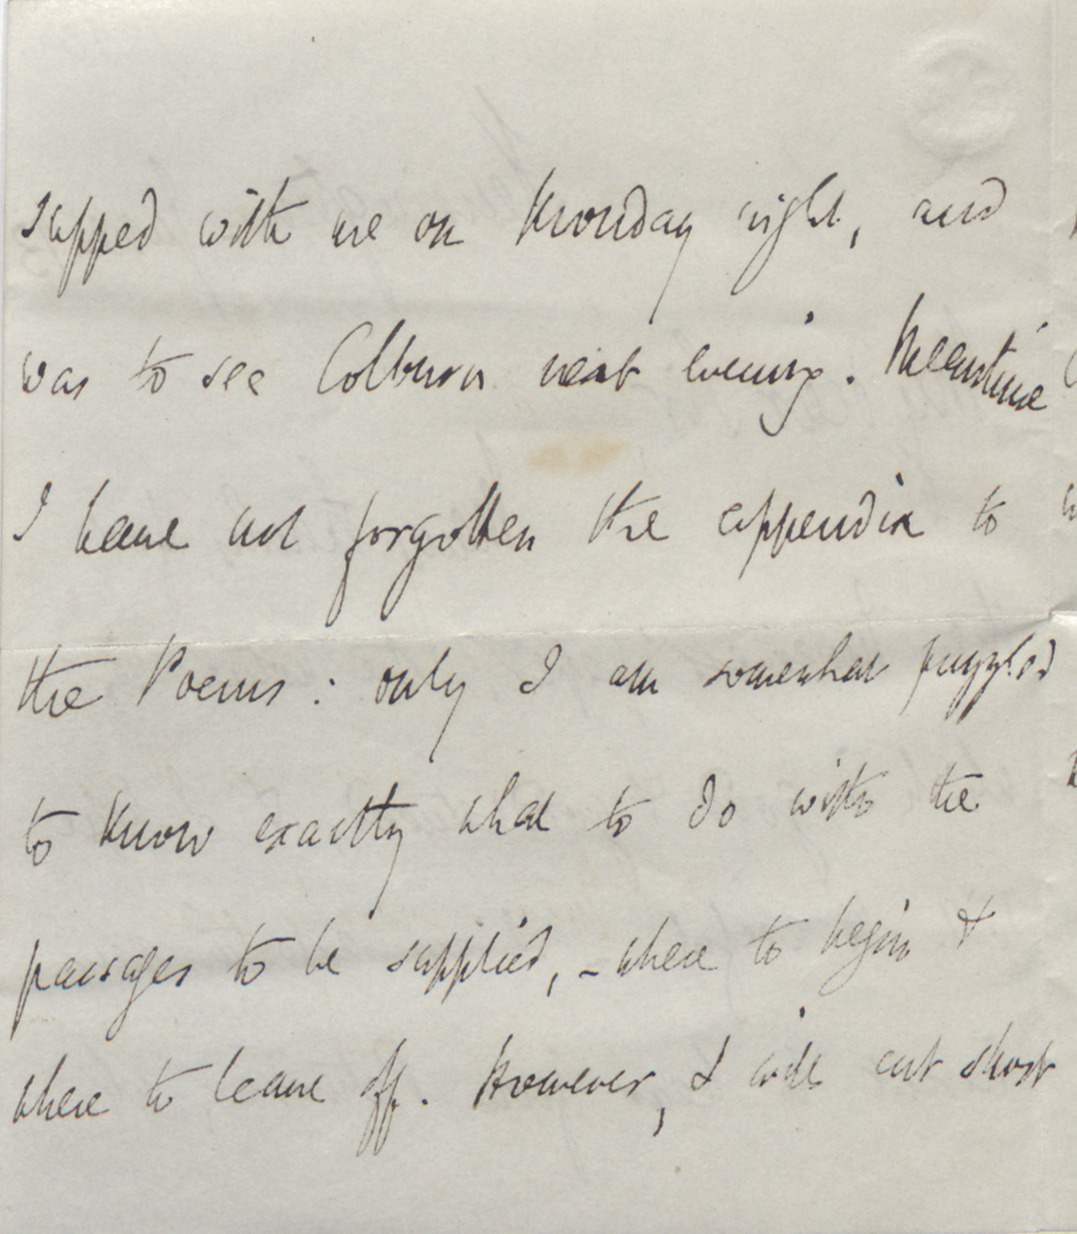 supped with me on Monday night, and
was to see Colburn next evening. Meantime
I have not forgotten the appendix to
the Poems: only I am somewhat puzzled
to know exactly what to do with the
passages to be supplied, - where to begin &
where to leave off. However, I will cut short